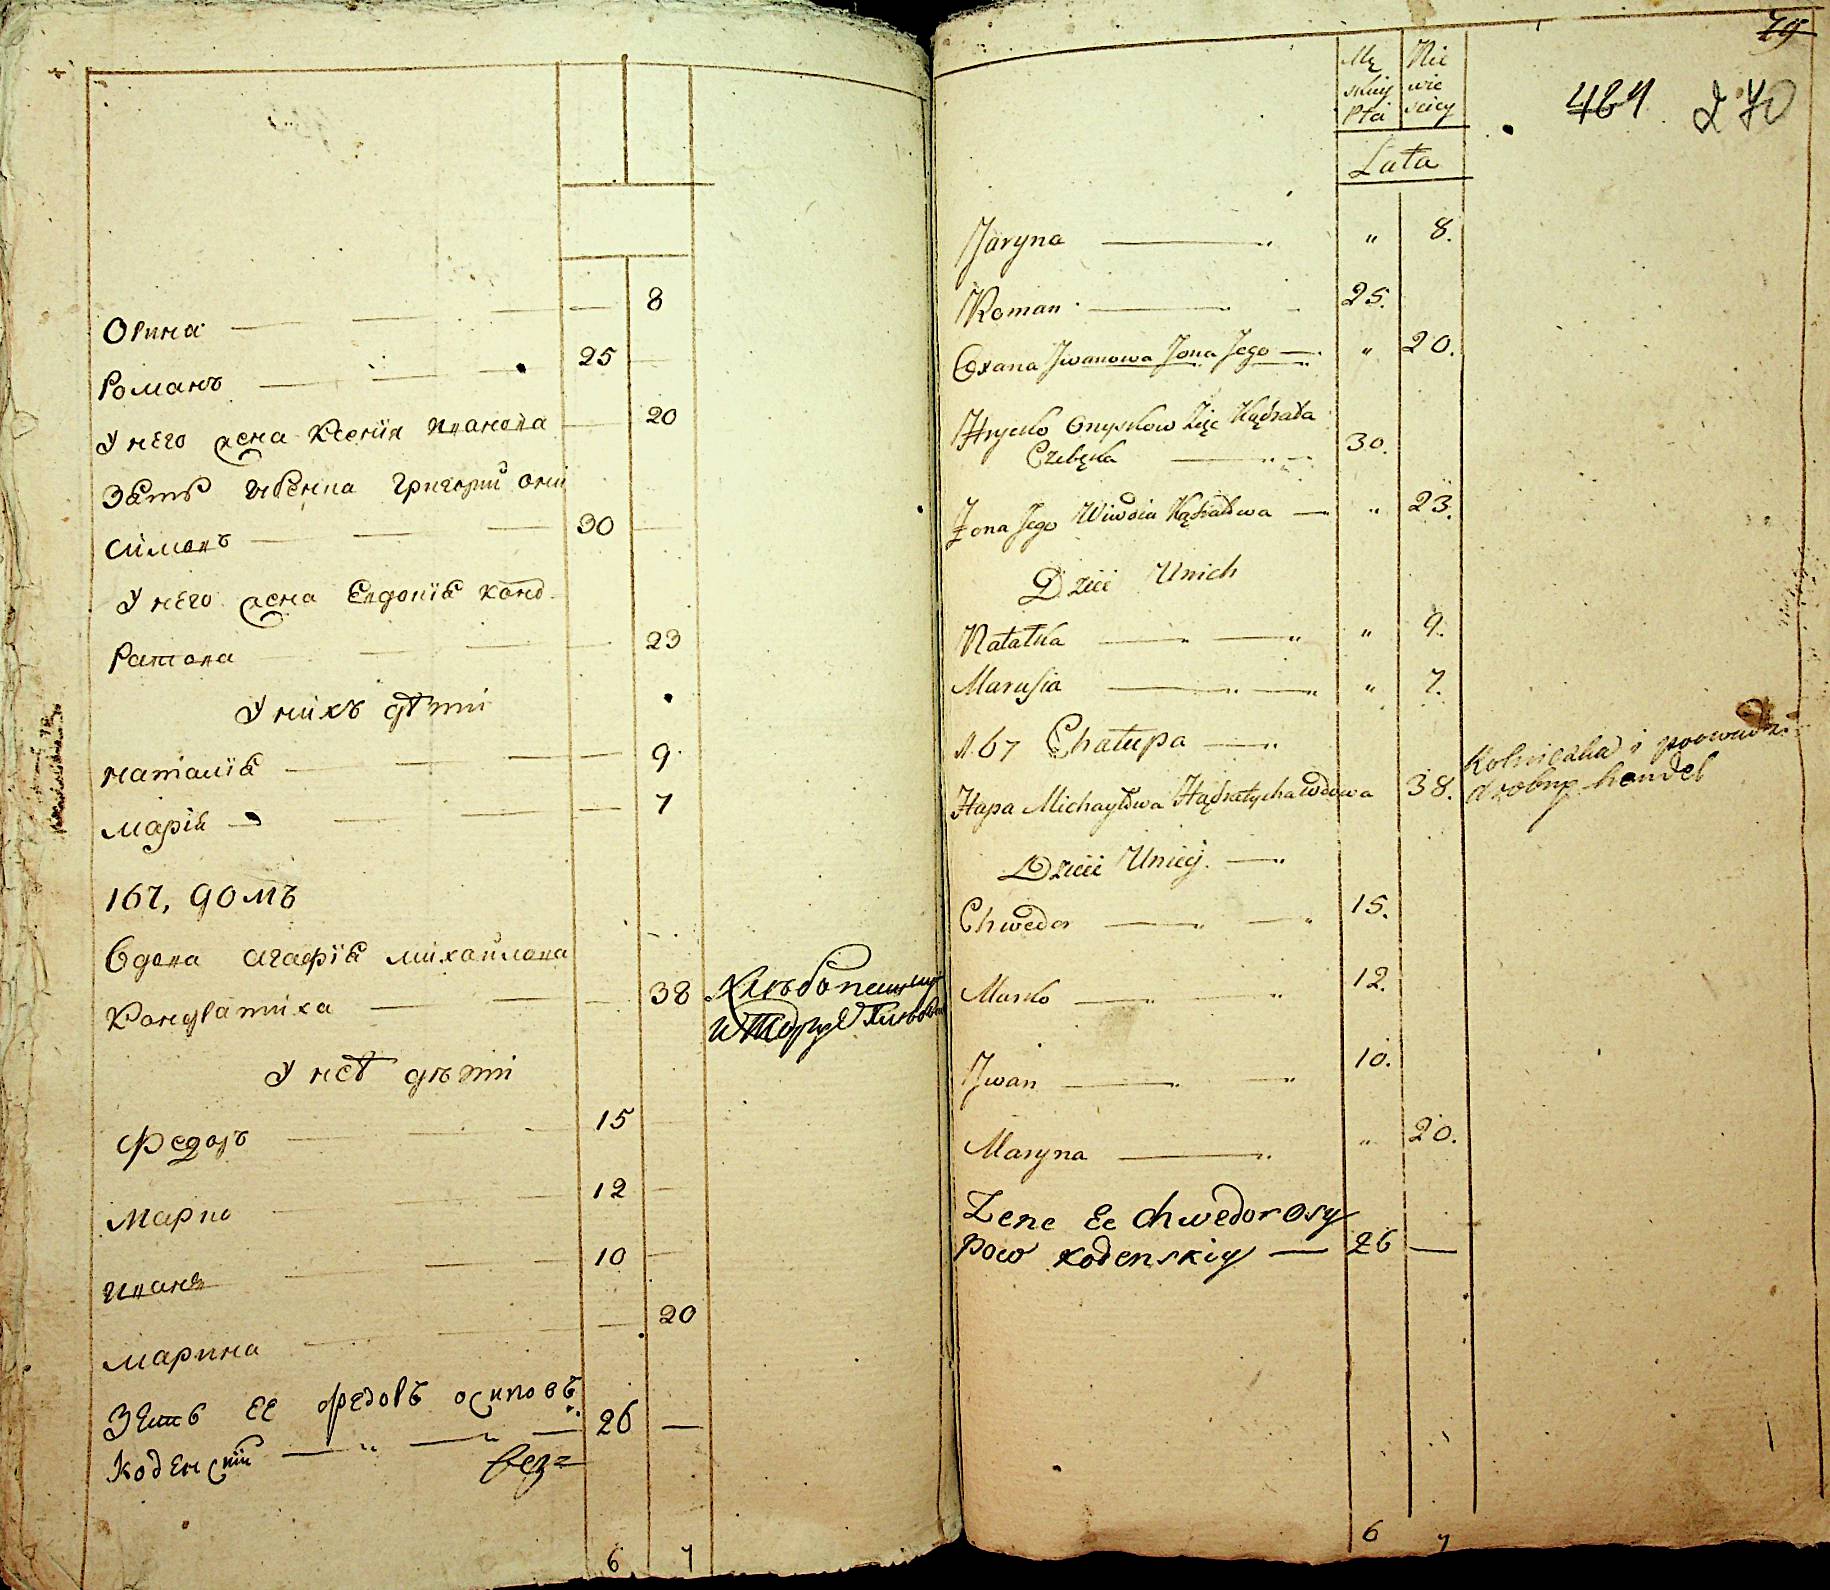 8
Орина
25
Романъ
У него жена Ксенїя Иванова 20
Зять Ивенца Григорий Они
симовъ 30
У него жена Евдокїя Конд
ратова 23
У нихъ дѣти
Наталїя 9
Марїя 7
167, домъ
Вдова Агафїя Михайлова
Кондратиха 38
У неѣ дѣти
Федоръ 15
Марко 12
Иванъ 10
Марина 20
Зять ее Федоръ Осиповъ
Коденскїй 26 —
6 7
79
Mę skiey Płci
Nie wie sciey
Lata
464 270
Jaryna " 8.
Roman 25.
Oxana Jwanowa Żona Jego " 20.
Hrycko Onyskow Zięc Kądrata
30.
Żona Jego Wiwdia Kądratowa " 23.
Dzieci Unich
Natałka " 9.
Marusia " 7.
N. 67 Chałupa
Hapa Michayłowa Kądratycha wdowa 38.
Kolniczka i prowadzi
drobny handel
Dzieci Uniey.
Chwedor 15.
Marko 12.
Jwan 10.
Maryna " 20.
Zene Ee Chwedor Osy
pow Kodenskiy — 26 —
6 7